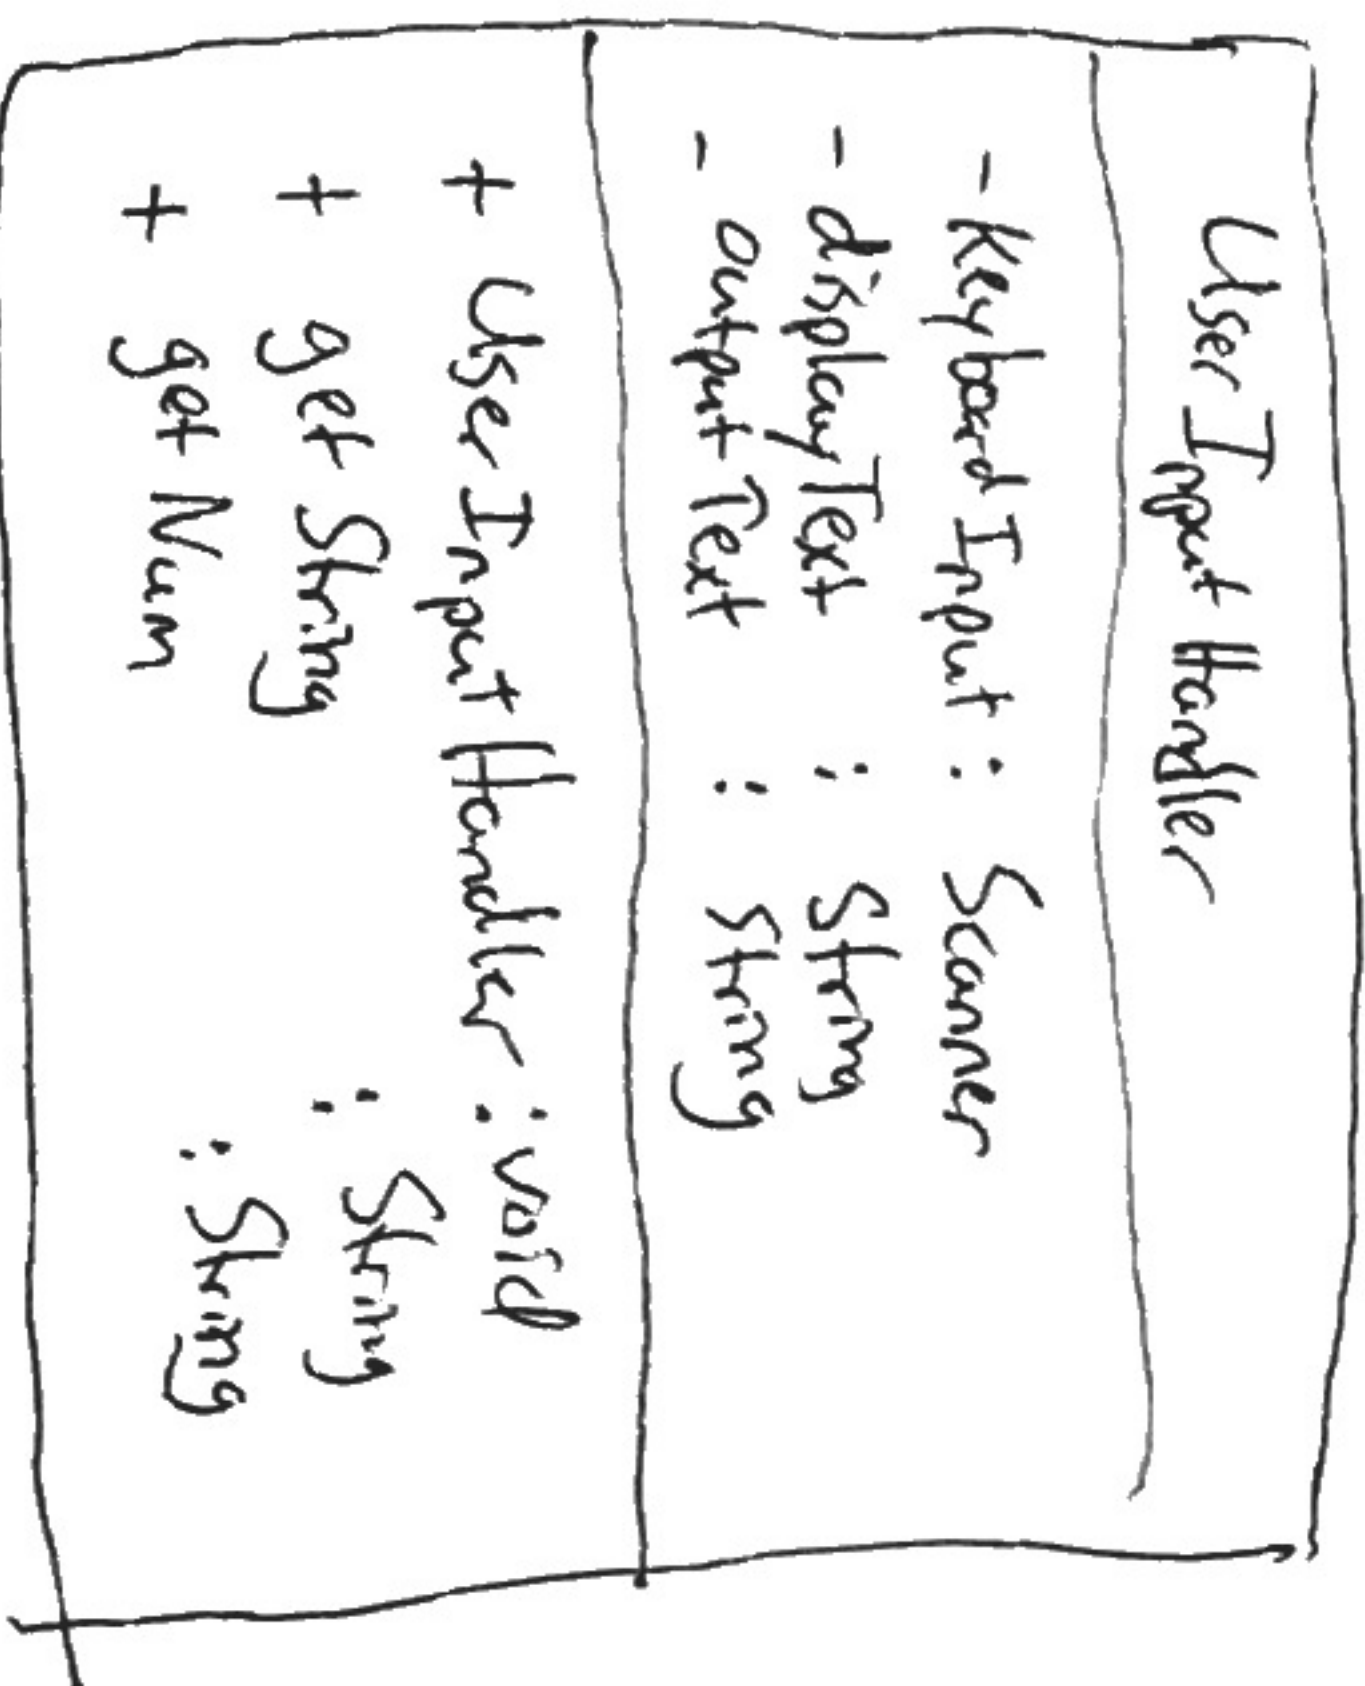 UserInputHandler
- KeyboardInput : Scanner
- displayText : String
- outputText : String
+ UserInputHandler : void
+ getString : String
+ getNum : String